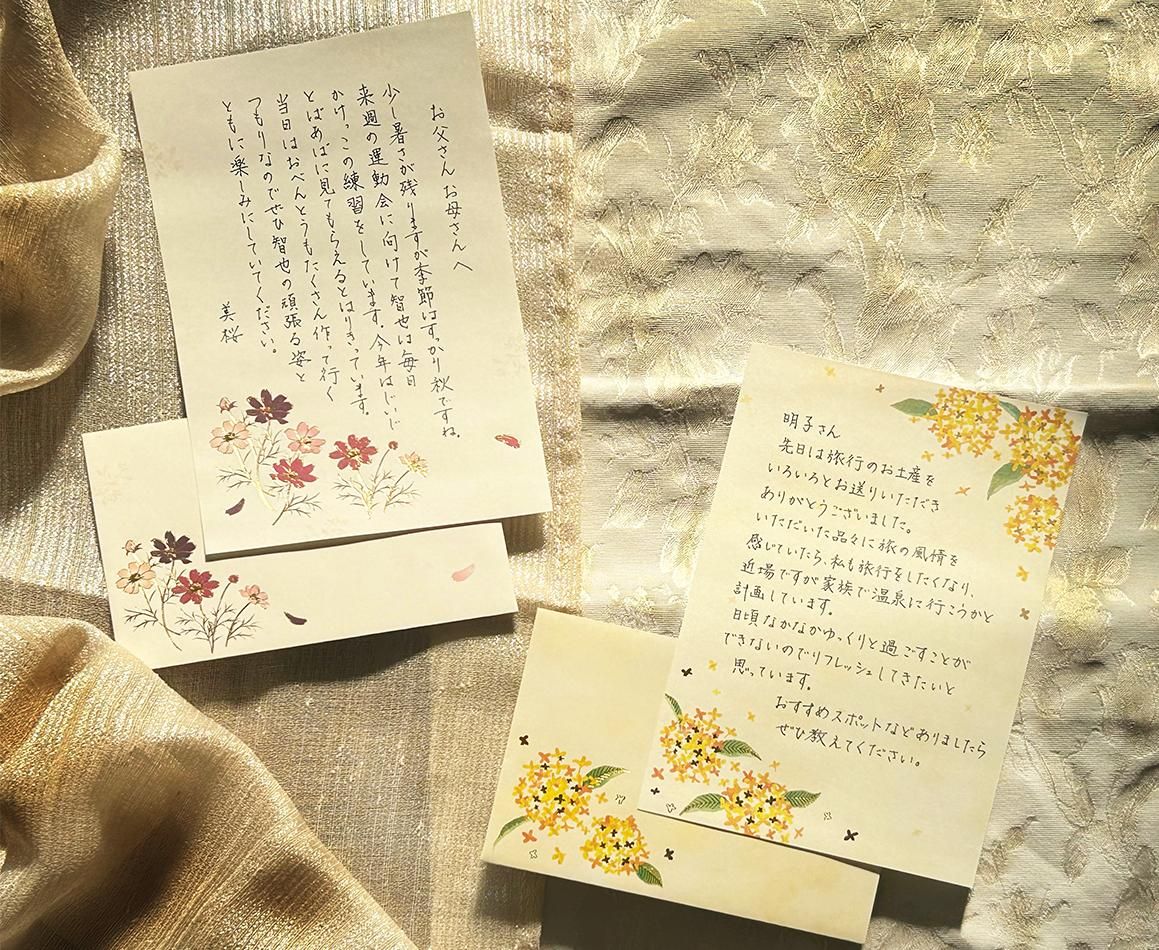 お父さんお母さんへ
少し暑さが残りますが季節はすっかり秋ですね。
来週の運動会に向けて智也は毎日
かけっこの練習をしています。今年はじいじ
とばあばに見てもらえるとはりきっています。
当日はおべんとうもたくさん作って行く
つもりなのでぜひ智也の頑張る姿と
ともに楽しみにしていてください。
美桜
明子さん
先日は旅行のお土産を
いろいろとお送りいただき
ありがとうございました。
いただいた品々に旅の風情を
感じていたら、私も旅行をしたくなり、
近場ですが家族で温泉に行こうかと
計画しています。
日頃なかなかゆっくりと過ごすことが
できないのでリフレッシュしてきたいと
思っています。
おすすめスポットなどありましたら
ぜひ教えてください。